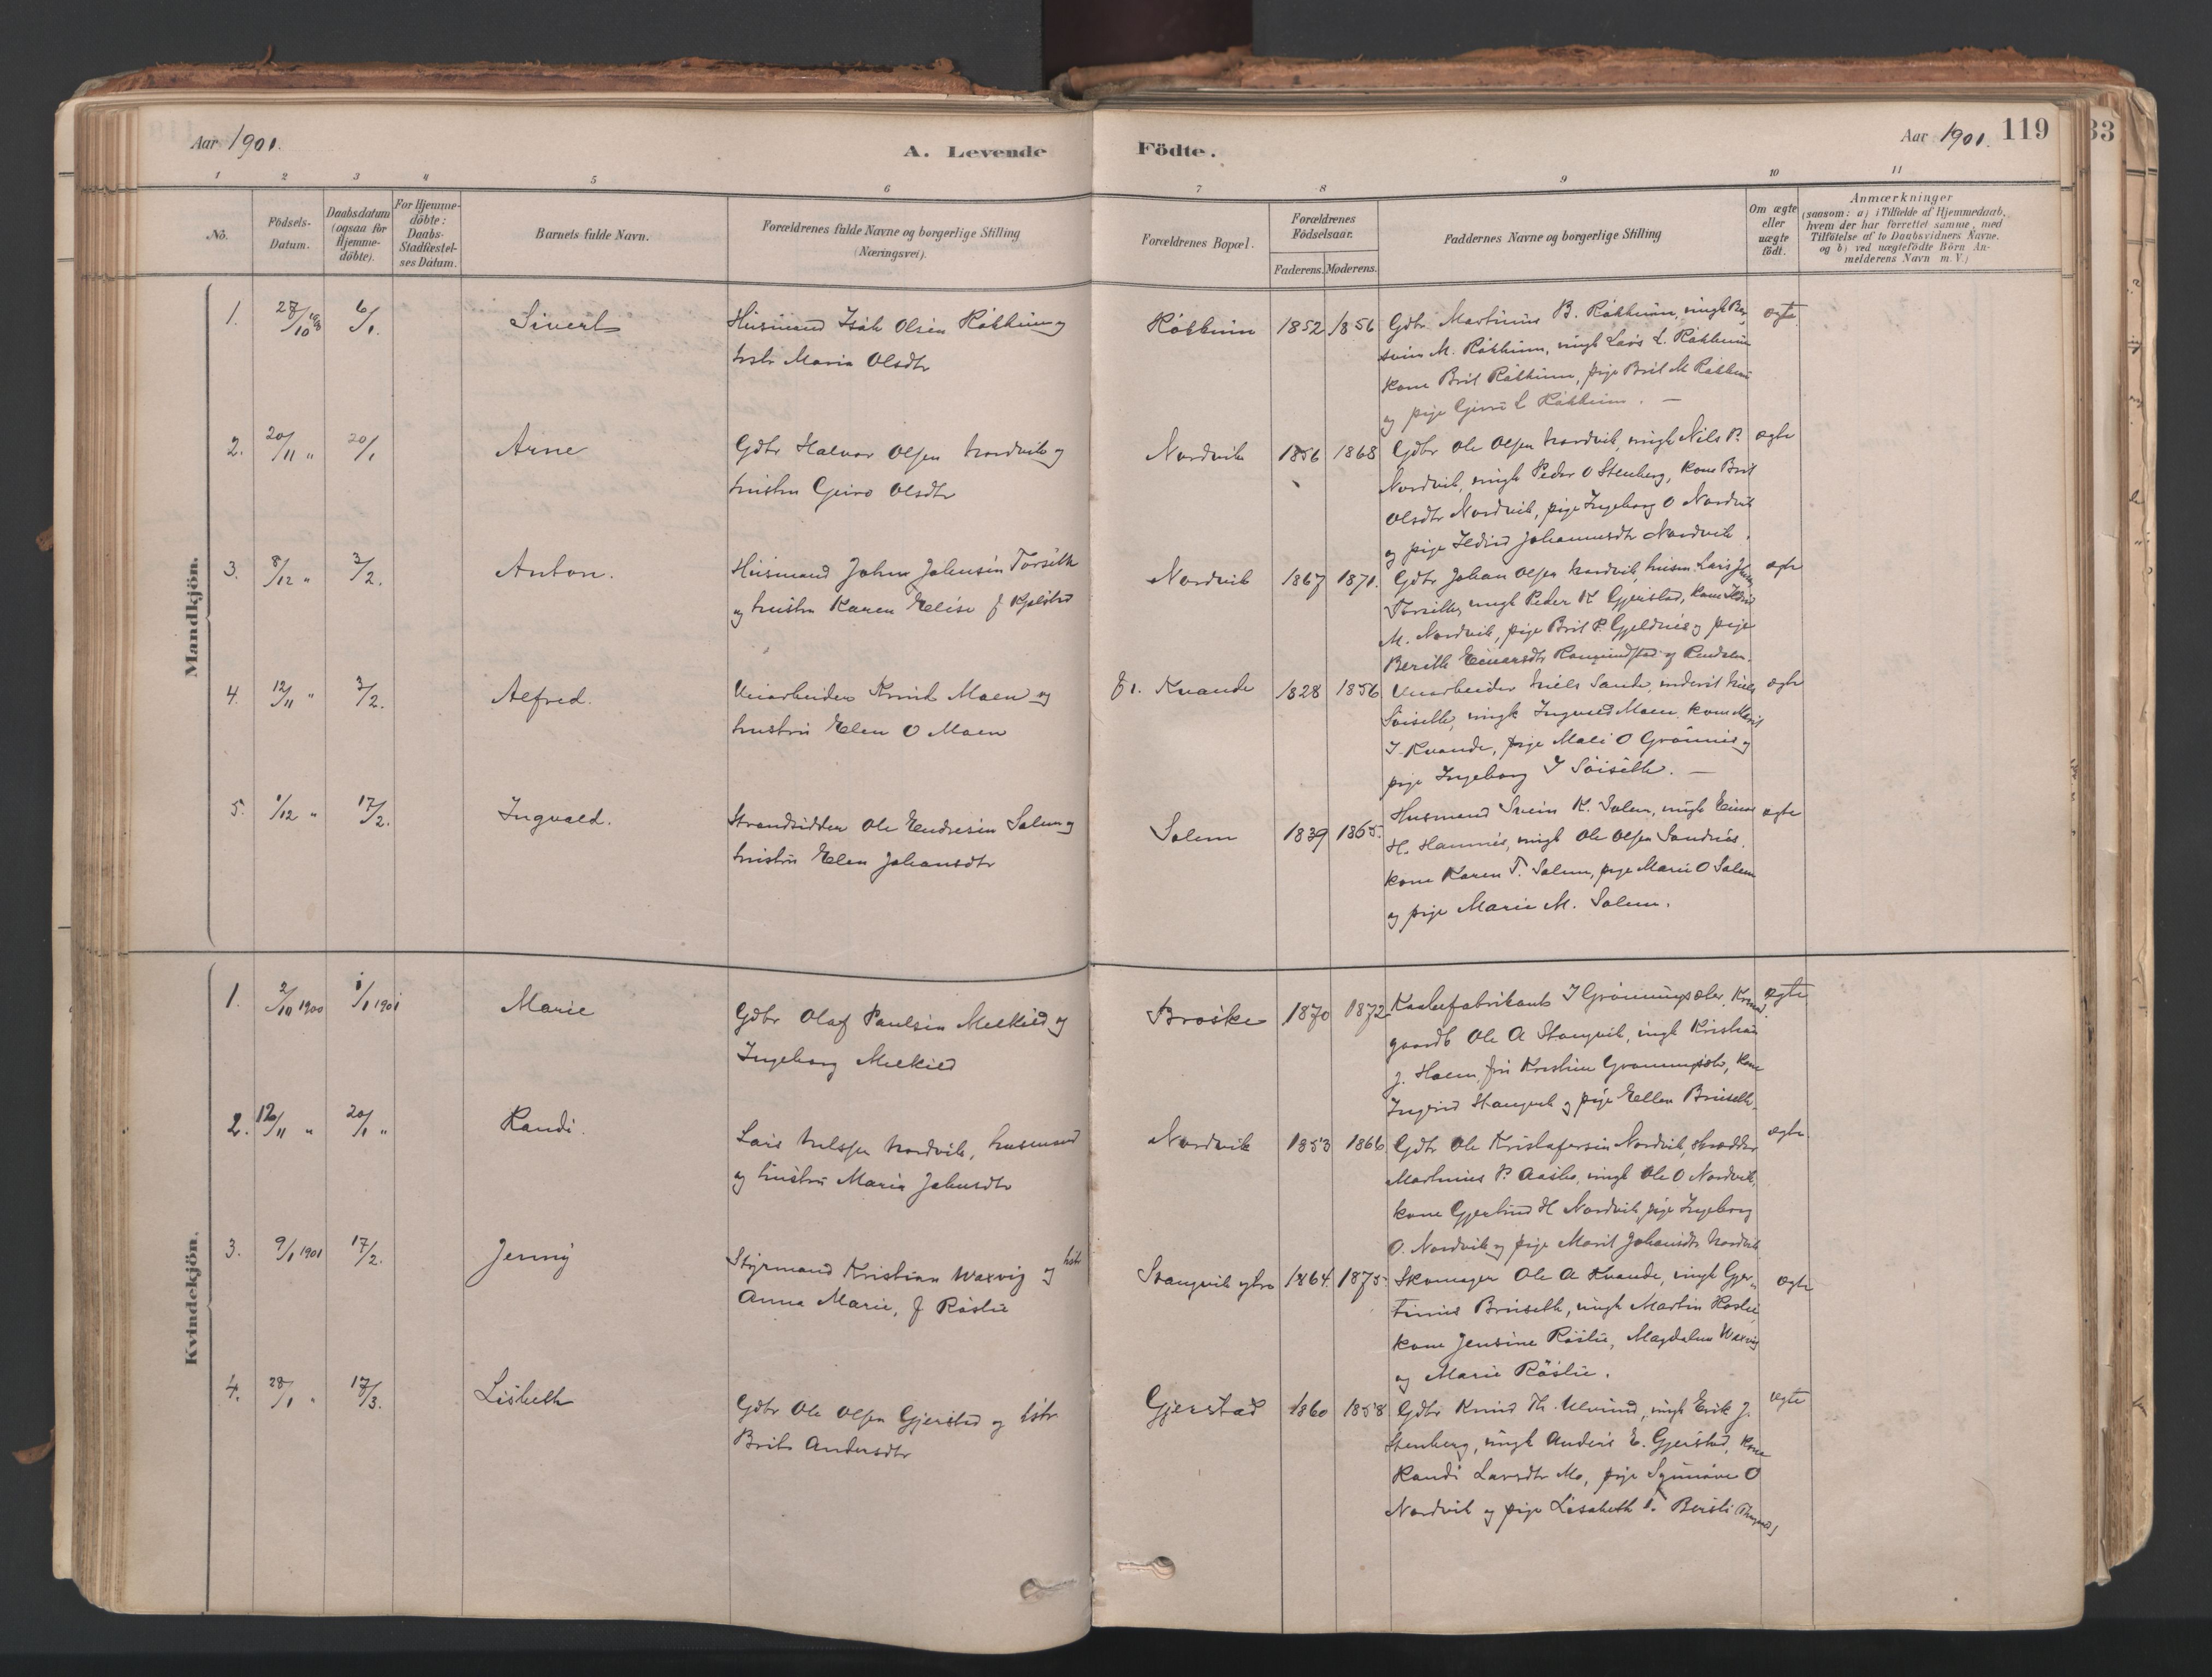 Aar 1901.
A. Levende
Födte.
Aar 1901.
119
33
1 2 3 4 5 6 7 8 9 10 11
No.
Födsels-Datum.
Daabsdatum (ogsaa for Hjemme-döbte).
For Hjemme-döbte: Daabs-Stadfæstel-ses Datum.
Barnets fulde Navn.
Forældrenes fulde Navne og borgerlige Stilling
(Næringsvei).
Forældrenes Bopæl.
Forældrenes Födselsaar.
Faderens. Moderens.
Faddernes Navne og borgerlige Stilling
Om ægte eller uægte födt.
Anmærkninger
(saasom: a) i Tilfælde af Hjemmedaab,
hvem der har forrettet samme, med
Tilföielse af to Daabsvidners Navne,
og b) ved uægtefödte Börn An-
melderens Navn m. V.)
Mandkjön.
1. 28/10 6/1. Sivert
Husmand Isak Olsen Røkkum og
hstr Maria Olsdtr
Røkkum 1852 1856
Gdbr. Martinus B. Røkkum, ungk
M. Røkkum, ungk Lars L. Røkkum
kone Brit Røkkum, pige Brit M Røkkum
og pige Guru L Røkkum. —
ægte
2. 20/11 " 20/1 Arne
Gdbr Halvor Olsen Nordvik og
hustru Guro Olsdtr
Nordvik 1856 1868
Gdbr Ole Olsen Nordvik, ungk Nils P.
Nordvik, ungk Peder O Stenberg, kone Brit
Olsdtr Nordvik, pige Ingeborg O Nordvik
og pige Ildrid Johannesdtr Nordvik.
ægte
3. 8/12 " 3/2. Anton.
Husmand John Johnsen Torseth
og hustru Karen Elise f
Nordvik 1867 1871.
Gdbr Johan Olsen Nordvik, husm. Lars
ungk Peder K Gjerstad, kone Ildrid
M. Nordvik, pige Brit P. Gjeldnes og pige
Berith Einarsdtr
ægte
4. 12/11 " 3/2. Alfred.
Veiarbeider Knud Moen og
hustru Elen O Moen
Kvande 1828 1856
Veiarbeider Niels Sande,
ungk Ingvald Moen, kone Marit
I. Kvande, pige Mali O Grønnes og
pige Ingeborg I Søiseth. —
ægte
5. 1/12 " 17/2. Ingvald.
Strandsidder Ole Endresen Solem og
hustru Elen Johansdtr
Solem 1839 1865.
Husmand Svein K. Solem, ungk Einar
H. Hamnes, ungk Ole Olsen Sandnes.
kone Karen T. Solem, pige Marie O Solem
og pige Marie M. Solem.
ægte
Kvindekjön.
1. 2/10 1900 1/1 1901 Marie
Gdbr Olaf Paulsen Melkild og
Ingeborg Melkild
Brøske 1870 1872
I Grønningsæter,
gaardb Ole A Stangvik, ungk Kristian
J. Holm, fru Kristine Grønningsæter, kone
Ingrid Stangvik og pige Ellen Bruseth.
ægte.
2. 12/11 " 20/1 " Randi.
Lars Nilssen Nordvik, husmand
og hustru Maria Johnsdtr
Nordvik 1853 1866
Gdbr Ole Kristofersen Nordvik, skrædder
Martinus P. Aasbø, ungk Ole O Nordvik,
kone Gjertrud H Nordvik, pige Ingeborg
O. Nordvik og pige Marit Johansdtr Nordvik
ægte
3. 9/1 1901 17/2. Jenny
Styrmand Kristian Waxvig og hstr
Anna Marie, f Røslie
Stangvik ytre 1864. 1875
Skomager Ole A Kvande, ungk Gjer-
tinius Bruseth, ungk Martin Røslie,
kone Jensine Røslie, Magdalena Waxvig
og Marie Røslie.
ægte
4. 28/1 " 17/3. Lisbeth
Gdbr Ole Olsen Gjerstad og hstr
Brit Andersdtr
Gjerstad 1860 1858
Gdbr Knud Th. Ulvund, ungk Erik J.
Stenberg, ungk Anders E. Gjerstad, kone
Randi Larsdtr Mo, pige Synnøve O
Nordvik og pige Lisabeth
ægte